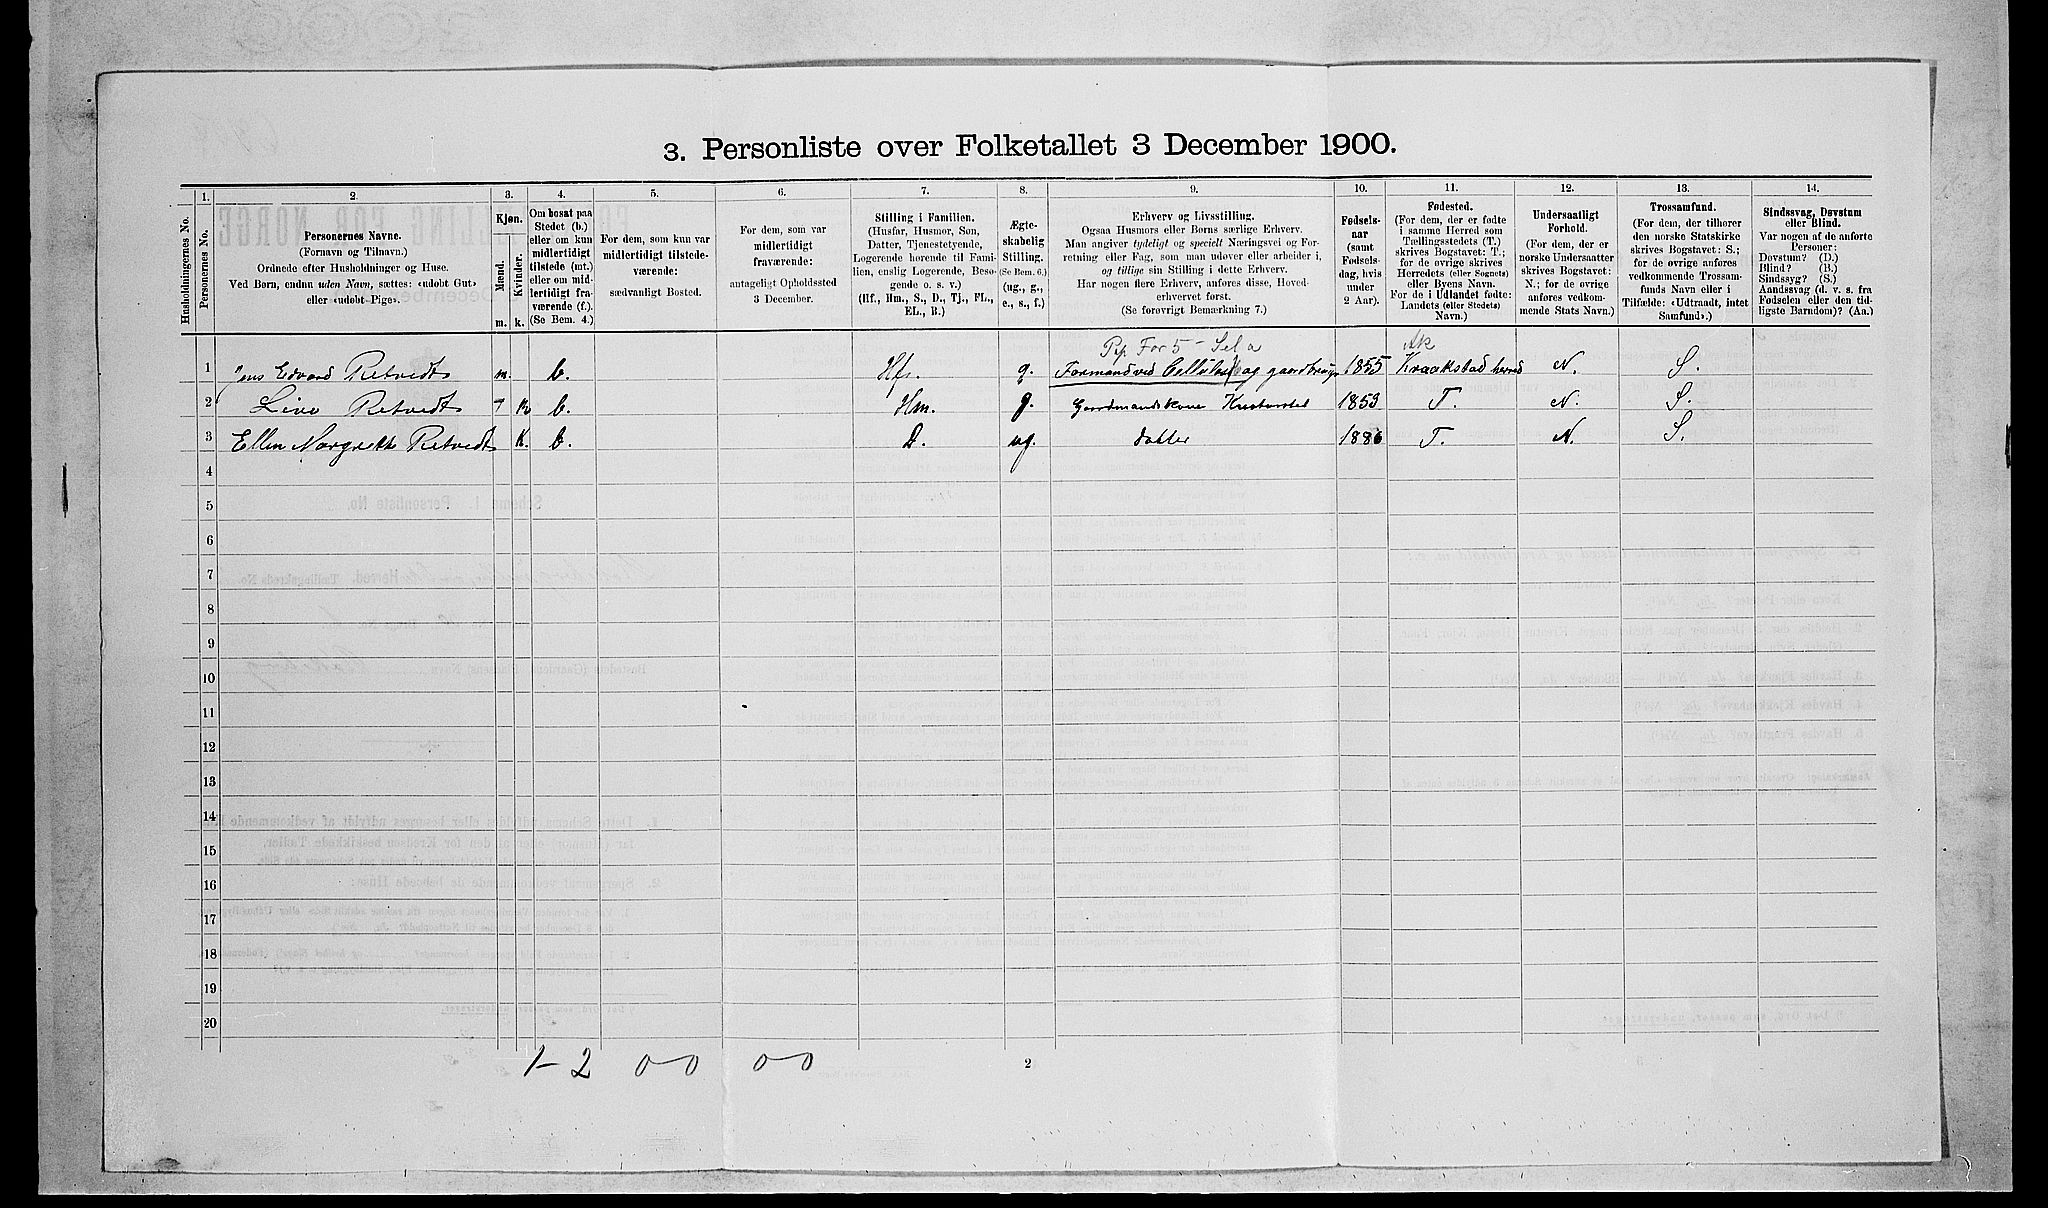 3. Personliste over Folketallet 3 December 1900.
1. 2. 3. 4. 5. 6. 7. 8. 9. 10. 11. 12. 13. 14.
Husholdningernes No.
Personernes No.
Personernes Navne.
(Fornavn og Tilnavn.)
Ordnede efter Husholdninger og Huse.
Ved Børn, endnu uden Navn, sættes: «udøbt Gut»
eller «udøbt Pige».
Kjøn.
Mænd.
Kvinder.
m. k.
Om bosat paa
Stedet (b.)
eller om kun
midlertidigt
tilstede (mt.)
eller om mid-
lertidigt fra-
værende (f.).
(Se Bem. 4.)
For dem, som kun var
midlertidigt tilstede-
værende:
sædvanligt Bosted.
For dem, som var
midlertidigt
fraværende:
antageligt Opholdssted
3 December.
Stilling i Familien.
(Husfar, Husmor, Søn,
Datter, Tjenestetyende,
Logerende hørende til Fami-
lien, enslig Logerende, Besø-
gende o. s. v.)
(Hf., Hm., S., D., Tj., FL.,
EL., B.)
Ægte-
skabelig
Stilling.
(Se Bem. 6.)
(ug., g.,
e., s., f.)
Erhverv og Livsstilling.
Ogsaa Husmors eller Børns særlige Erhverv.
Man angiver tydeligt og specielt Næringsvei og For-
retning eller Fag, som man udøver eller arbeider i,
og tillige sin Stilling i dette Erhverv.
Har nogen flere Erhverv, anføres disse, Hoved-
erhvervet først.
(Se forøvrigt Bemærkning 7.)
Fødsels-
aar
(samt
Fødsels-
dag, hvis
under
2 Aar).
Fødested.
(For dem, der er fødte
i samme Herred som
Tællingsstedets (T.)
skrives Bogstavet: T.;
for de øvrige skrives
Herredets (eller Sognets)
eller Byens Navn.
For de i Udlandet fødte:
Landets (eller Stedets)
Navn.)
Undersaatligt
Forhold.
(For dem, der er
norske Undersaatter
skrives Bogstavet:
N.; for de øvrige
anføres vedkom-
mende Stats Navn.)
Trossamfund.
(For dem, der tilhører
den norske Statskirke
skrives Bogstavet: S.;
for de øvrige anføres
vedkommende Trossam-
funds Navn eller i
Tilfælde: «Udtraadt, intet
Samfund».)
Sindssvag, Døvstum
eller Blind.
Var nogen af de anførte
Personer:
Døvstum? (D.)
Blind? (B.)
Sindssyg? (S.)
Aandssvag (d. v. s. fra
Fødselen eller den tid-
ligste Barndom)? (Aa.)
Pap For 5 - Sel a
Ak
1 Jens Edvard Retvedt m. b. Hf. g. Formand ved Cellulose og gaardbruger 1855 Kraakstad herred N. S.
2 Retvedt k b. Hm. g. Gaardmandskone 1853 T. N. S.
3 Ellen Margrethe Retvedt K. b. D. ug. datter 1886 T. N. S.
4
5
6
7
8
9
10
11
12
13
14
15
16
17
18
19
20
1-2 0-0 0-0
2